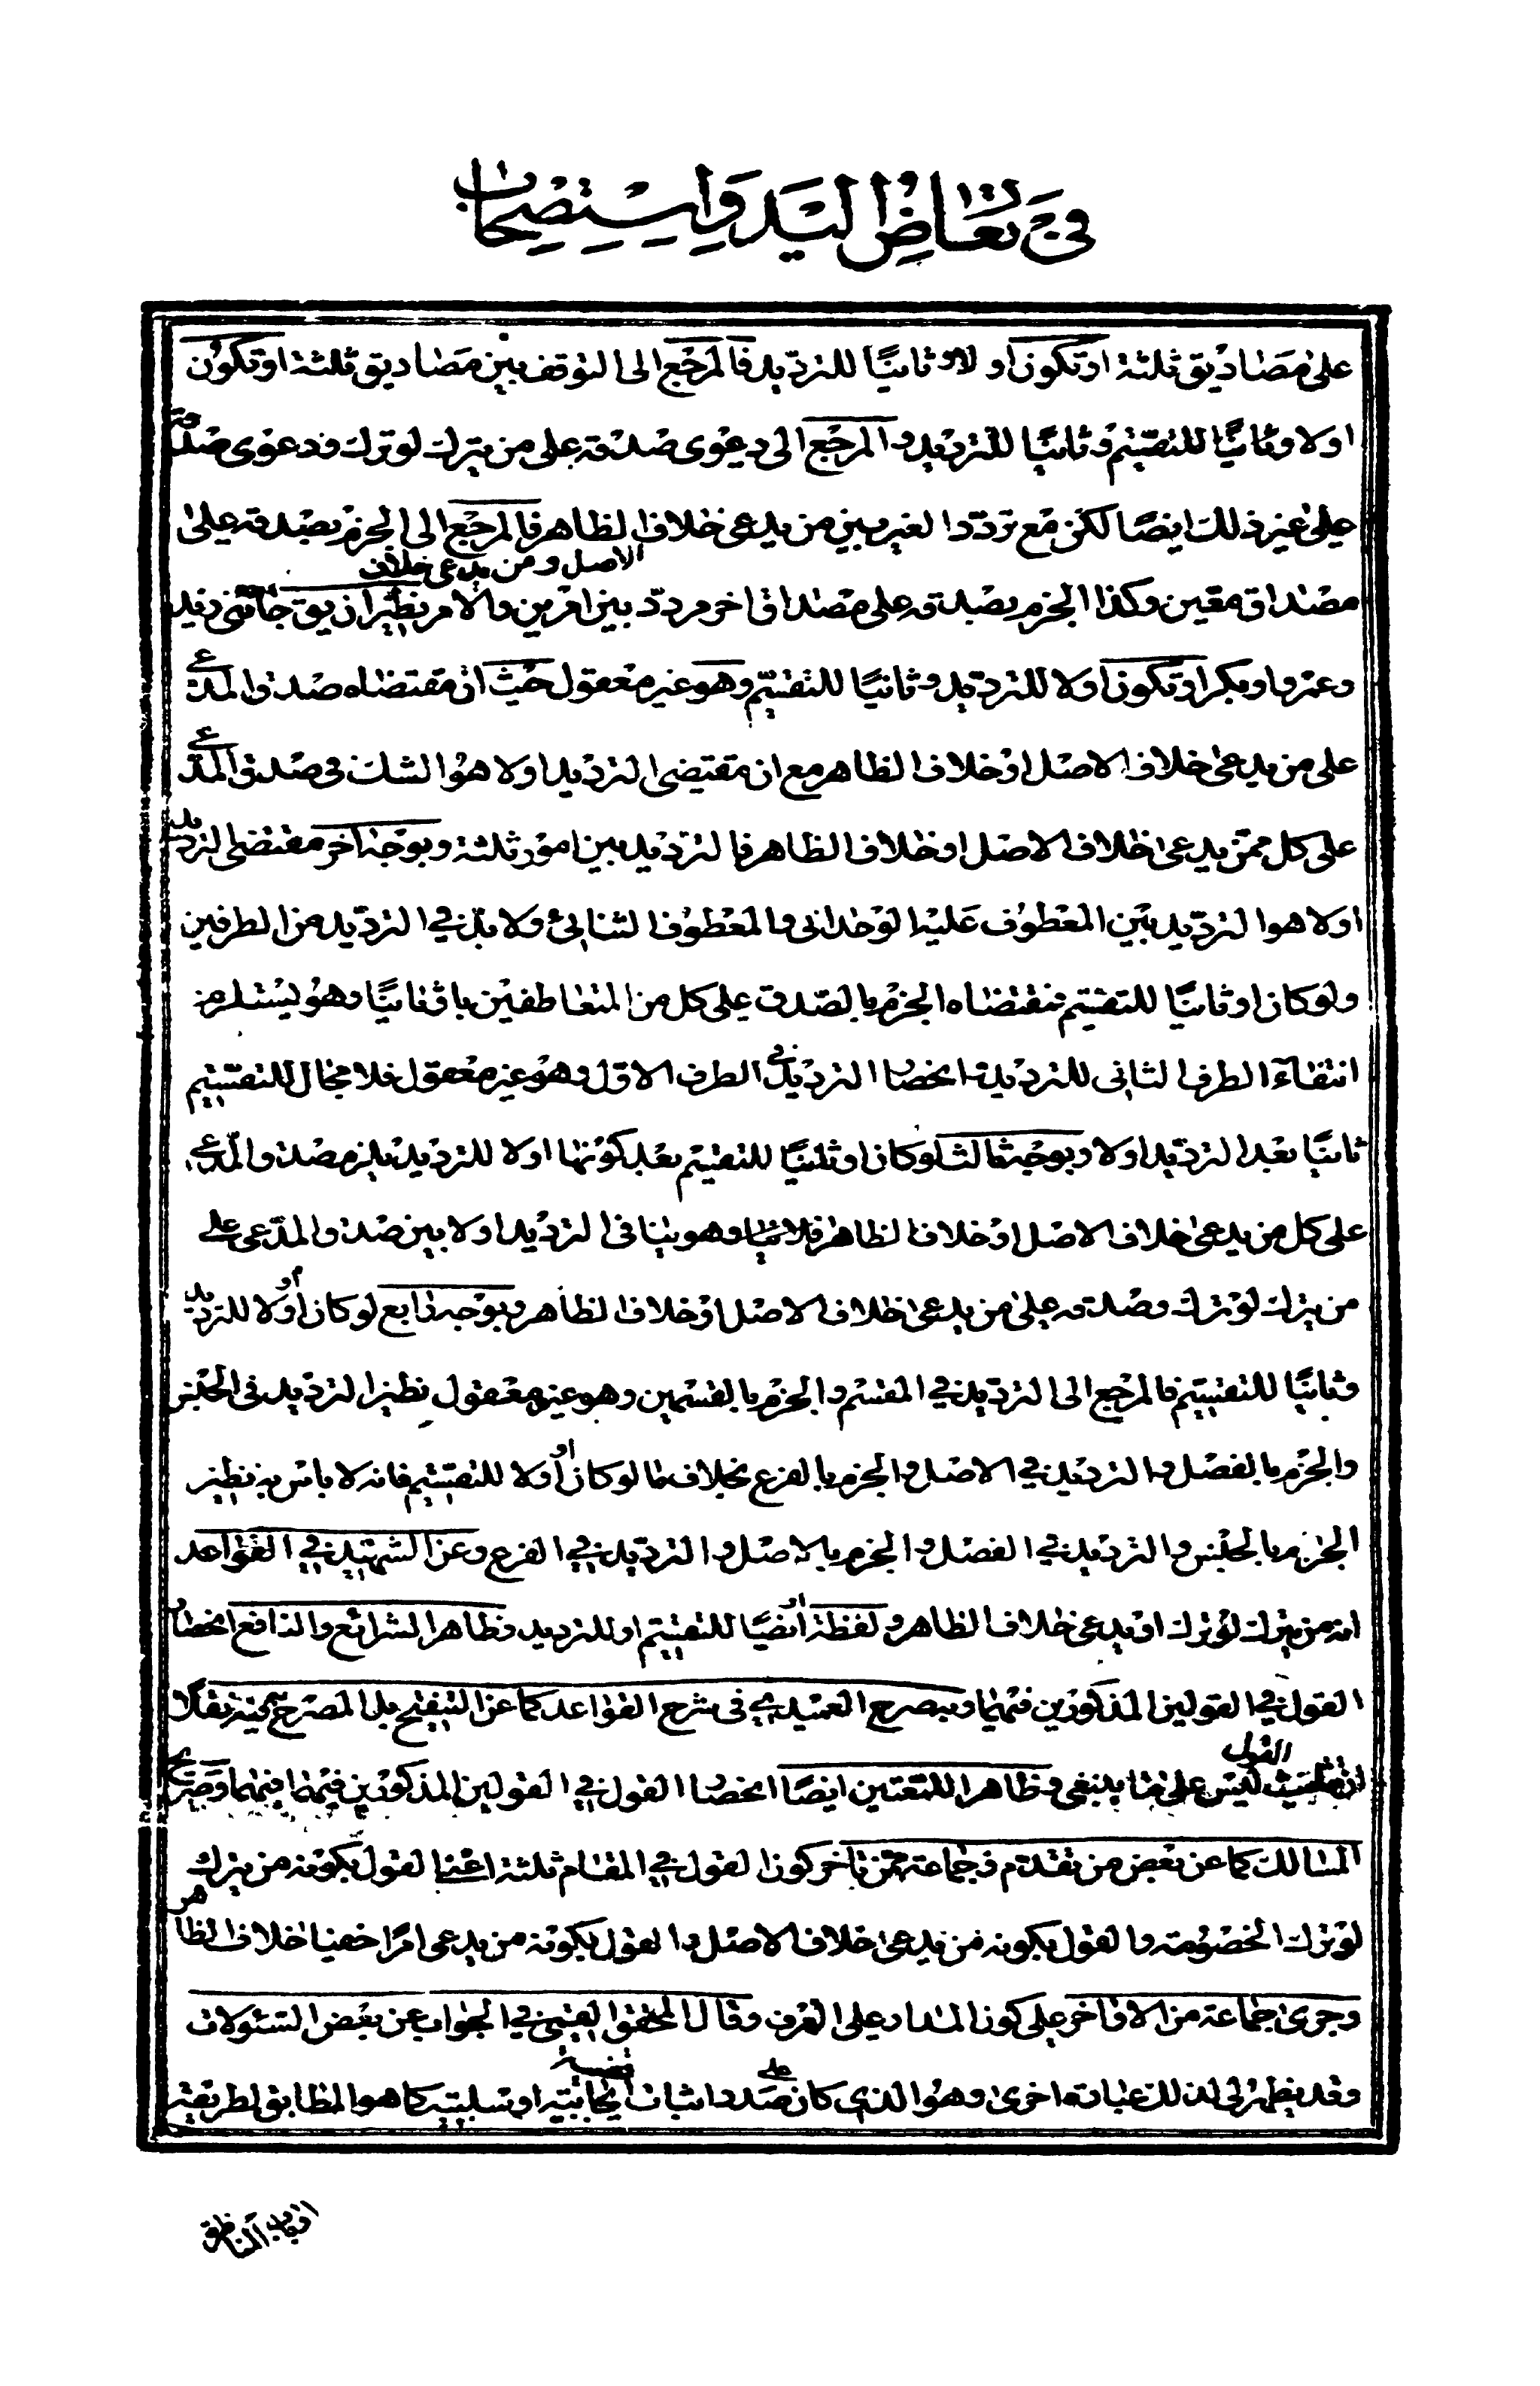 في تعارض اليد واستصحاب
على مصاديق ثلثة او تكون او لا و ثانيًا للترديد فالمرجع الى التوقف بين مصاديق ثلثة او تكون
اولا وثانيًا للتقسيم وثانيًا للترديد والمرجع الى دعوى صدقه على من يترك لو ترك ودعوى صدقه
على غير ذلك ايضًا لكن مع تردد الغير بين من يدعى خلاف الظاهر فالمرجع الى الجزم بصدقه على
الاصل ومن يدعى خلاف
مصداق معين وكذا الجزم بصدقه على مصداق اخر مردد بين امرين والامر نظير ان يق جائنى زيد
وعمرو او بكر او تكون اولا للترديد وثانيًا للتقسيم وهو غير معقول حيث ان مقتضاه صدق المدعى
على من يدعى خلاف الاصل او خلاف الظاهر مع ان مقتضى الترديد اولا هو الشك فى صدق المدعى
على كل ممن يدعى خلاف الاصل او خلاف الظاهر فالترديد بين امور ثلثة وبوجه اخر مقتضى الترديد
اولا هو الترديد بين المعطوف عليه الوحدانى والمعطوف الثنائى ولا بد في الترديد من الطرفين
ولو كان او ثانيًا للتقسيم فمقتضاه الجزم بالصدق على كل من المتعاطفين باو ثانيًا وهو يستلزم
انتفاء الطرف الثانى للترديد انحصار الترديد في الطرف الاول وهو غير معقول فلا مجال للتقسيم
ثانيًا بعد الترديد اولا وبوجه ثالث لو كان او ثانيًا للتقسيم بعد كونها اولا للترديد يلزم صدق المدعى
على كل من يدعى خلاف الاصل او خلاف الظاهر وهو ينافى الترديد اولا بين صدق المدعى على
من يترك لو ترك وصدقه على من يدعى خلاف الاصل او خلاف الظاهر وبوجه رابع لو كان او اولا للترديد
وثانيًا للتقسيم فالمرجع الى الترديد في المقسم والجزم بالقسمين وهو غير معقول نظير الترديد فى الجنس
والجزم بالفصل والترديد في الاصل والجزم بالفرع بخلاف ما لو كان او اولا للتقسيم فانه لا باس به نظير
الجزم بالجنس والترديد في الفصل والجزم بالاصل والترديد في الفرع وعن الشهيد في القواعد
انه من يترك لو ترك او يدعى خلاف الظاهر ولفظة او ايضًا للتقسيم او للترديد وظاهر الشرائع والنافع انحصار
القول في القولين المذكورين فيهما وبه صرح العميدى فى شرح القواعد كما عن التنقيح بل المصرح به فيه نقلا
القول ليس على ما ينبغى وظاهر اللمعتين ايضًا انحصار القول في القولين المذكورين فيهما وصريح
المسالك كما عن بعض من تقدم وجماعة ممن تاخر كون القول في المقام ثلثة اعنى القول بكونه من يترك
لو ترك الخصومة والقول بكونه من يدعى خلاف الاصل والقول بكونه من يدعى امرًا خفيا خلاف الظاهر
وجرى جماعة من الاواخر على كون المدار على العرف وقال المحقق القمي في الجواب عن بعض السئولات
وقد يظهر لى لذلك عبارة اخرى وهو الذي كان على صدد اثبات قضية ايجابية او سلبية كما هو المطابق لطريقة